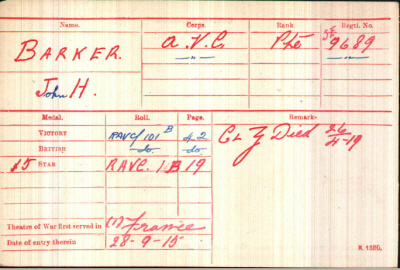 Name. Corps. Rank Regtl. No.
BARKER. A.V.C. Pte SE 9689
John H. —"— —"—
Medal. Roll. Page. Remarks
VICTORY RAVC/101 B 42 CL Z Died 26/4-19
BRITISH do do
15 STAR RAVC. 1B 19
Theatre of War first served in (1) France
Date of entry therein 28-9-15
K 1380.